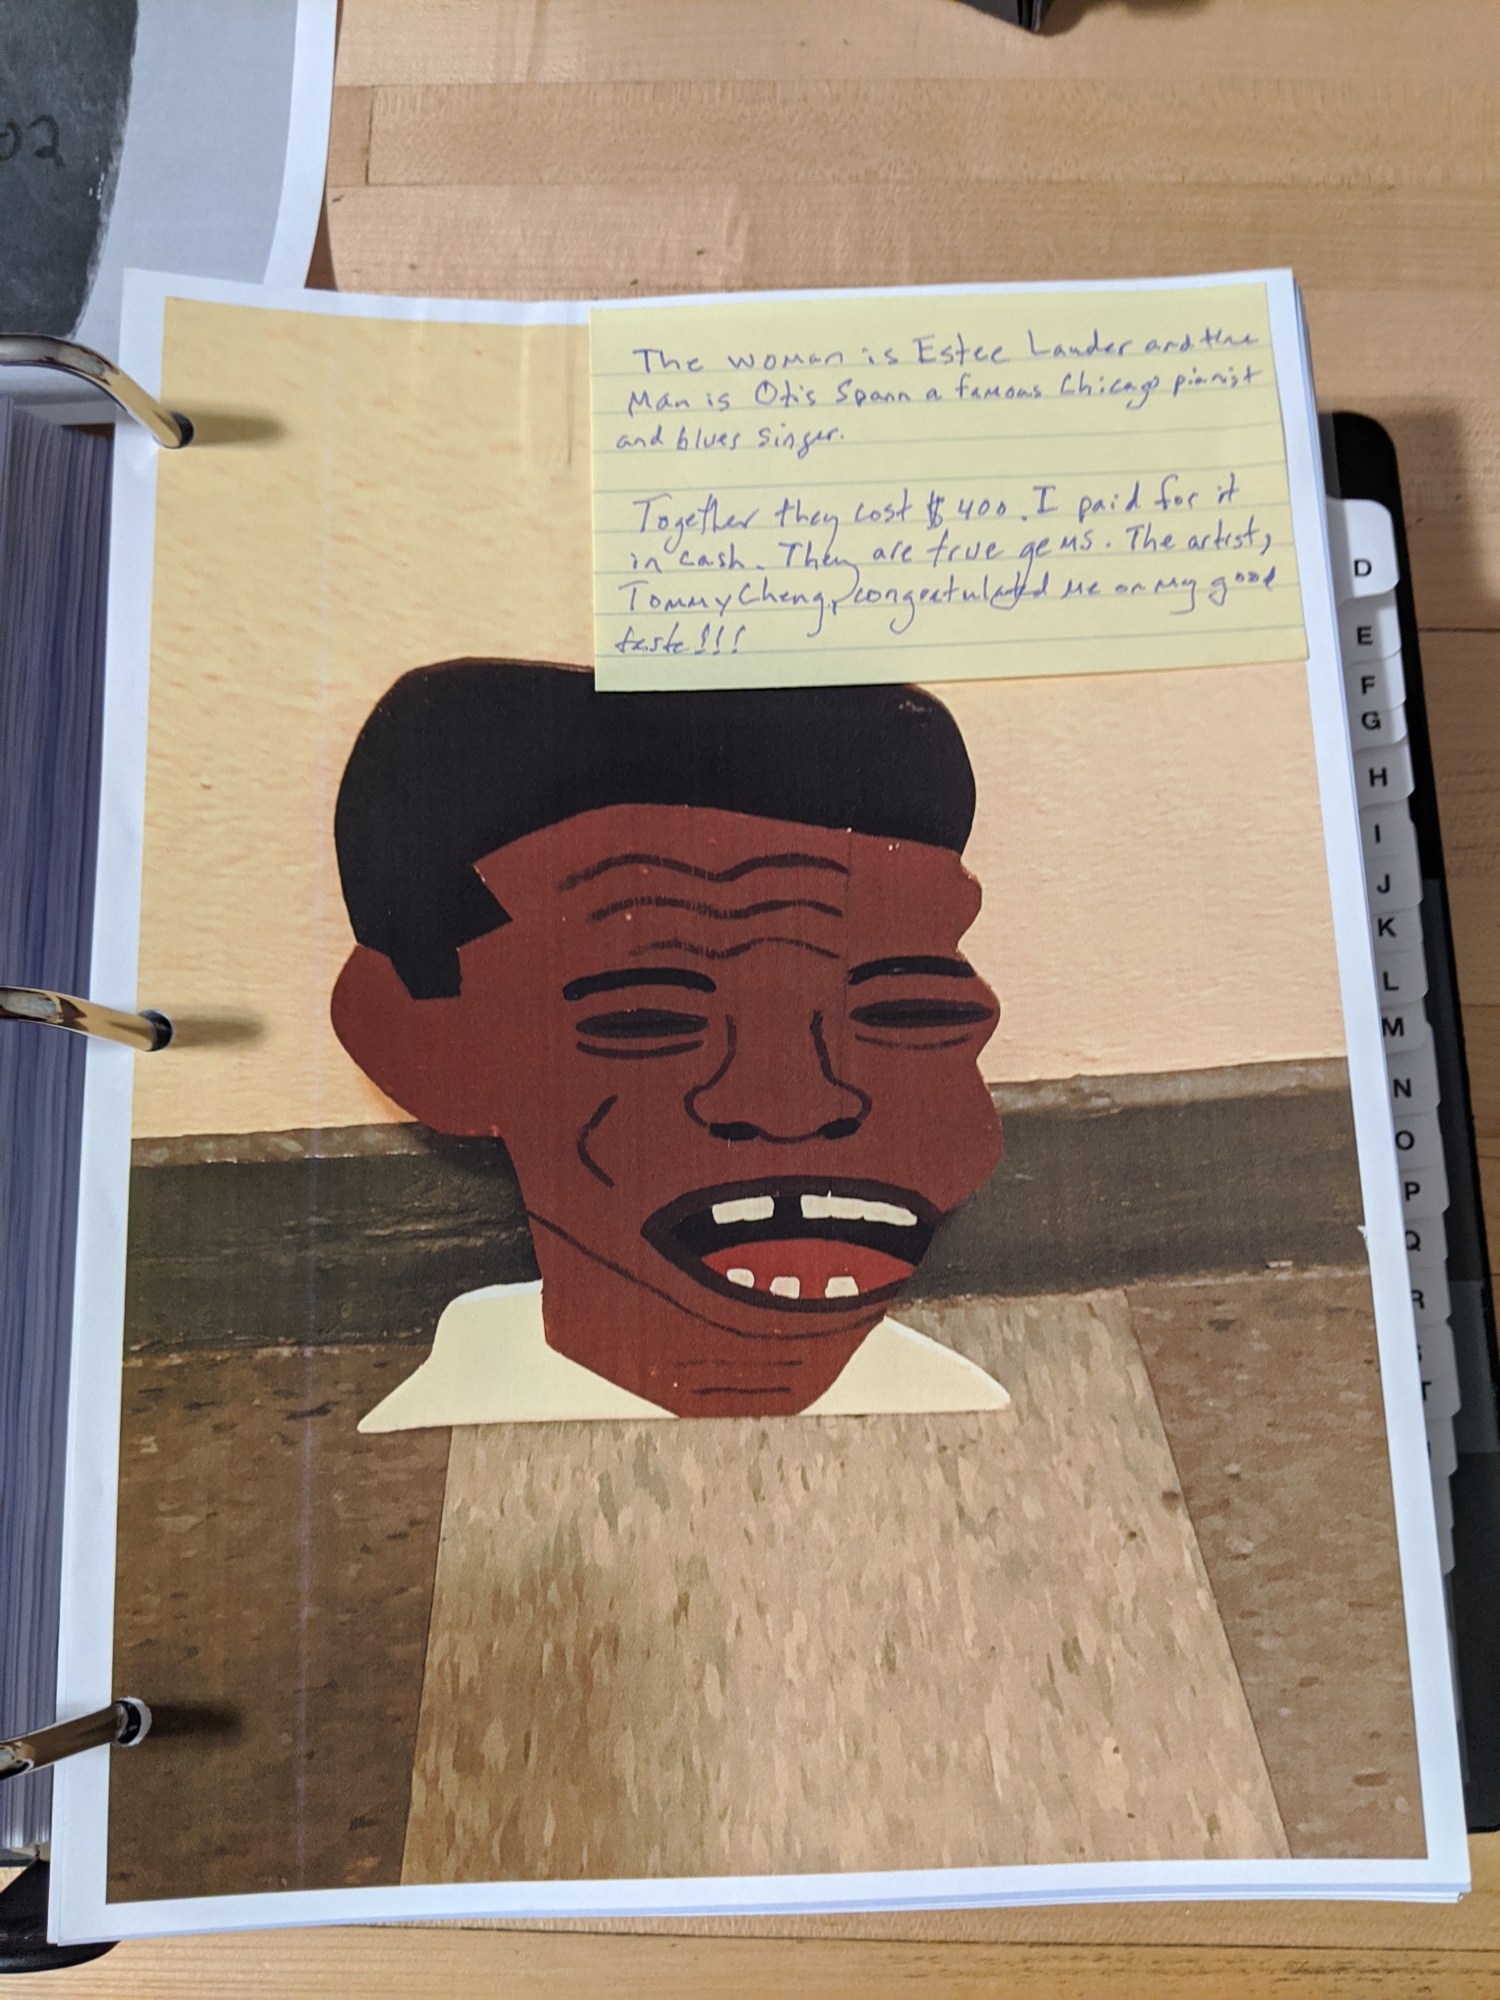 02
The woman is Estee Lauder and the
Man is Otis Spann a famous Chicago pianist
and blues singer.
Together they cost $400. I paid for it
in cash. They are true gems. The artist,
Tommy Cheng, congratulated me on my good
taste!!!
D
E
F
G
H
I
J
K
L
M
N
O
P
Q
R
S
T